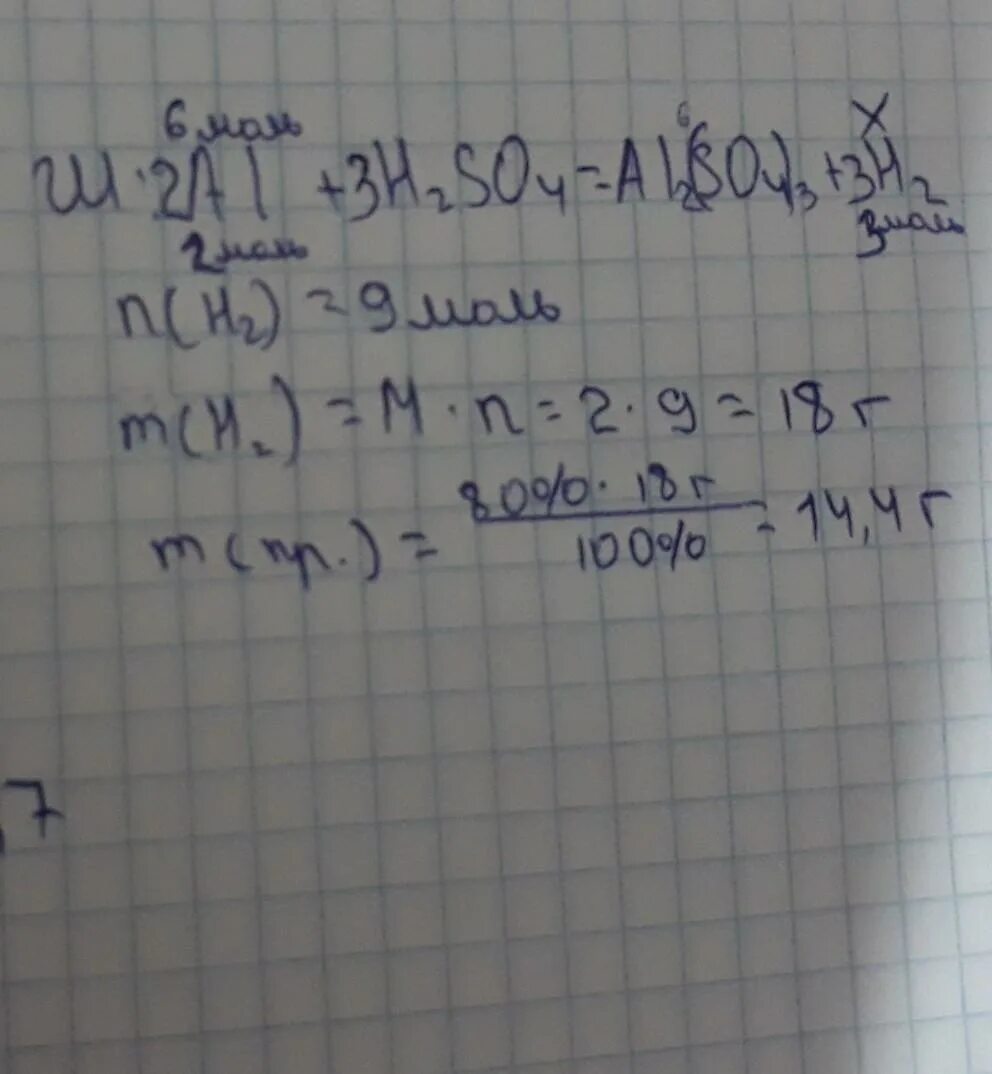 6 моль X
Ш. 2Al + 3H₂SO₄ = Al₂(SO₄)₃ + 3H₂
2 моль 3 моль
n(H₂) = 9 моль
m(H₂) = M · n = 2 · 9 = 18 г
m(пр.) = 80% · 18 г / 100% = 14,4 г
7